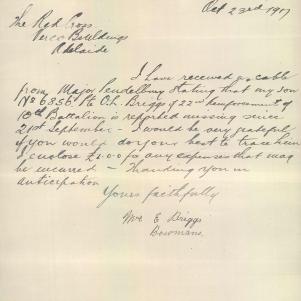 Oct 23rd 1917
The Red Cross
Verco Buildings
Adelaide
I have received a cable
from Major stating that my son
No 6856 Pte C.L. Briggs of 22nd Reinforcement of
10th Battalion is reported missing since
21st September - I would be very grateful
if you would do your best to trace him
I enclose £1.0.0 for any expenses that may
be incurred - Thanking you in
anticipation
Yours faithfully
Mrs E Briggs
Bowmans